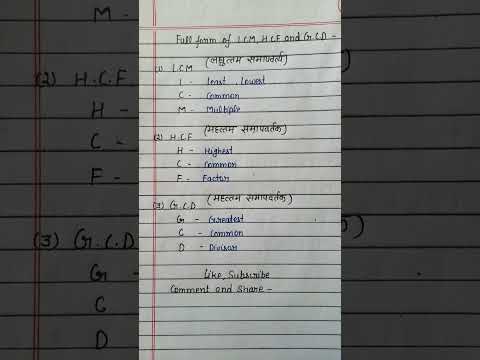 Full form of L.C.M, H.C.F and G.C.D -
(1) L.C.M (लघुत्तम समापवर्त्य)
L - Least, Lowest
C - Common
M - Multiple
(2) H.C.F (महत्तम समापवर्तक)
H - Highest
C - Common
F - Factor
(3) G.C.D (महत्तम समापवर्तक)
G - Greatest
C - Common
D - Divisor
Like, Subscribe
Comment and Share -